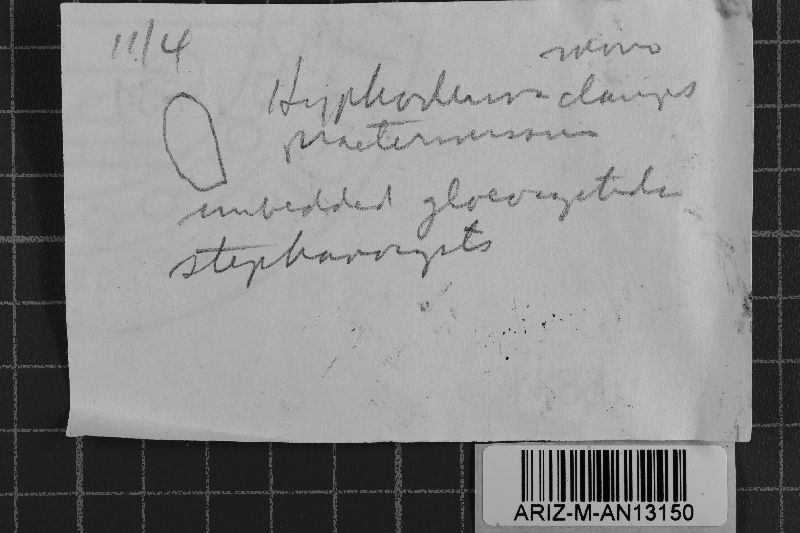 11/4
Hyphoderma clamps
praetermissum
imbedded gloeocystidia
stephanocysts
ARIZ-M-AN13150